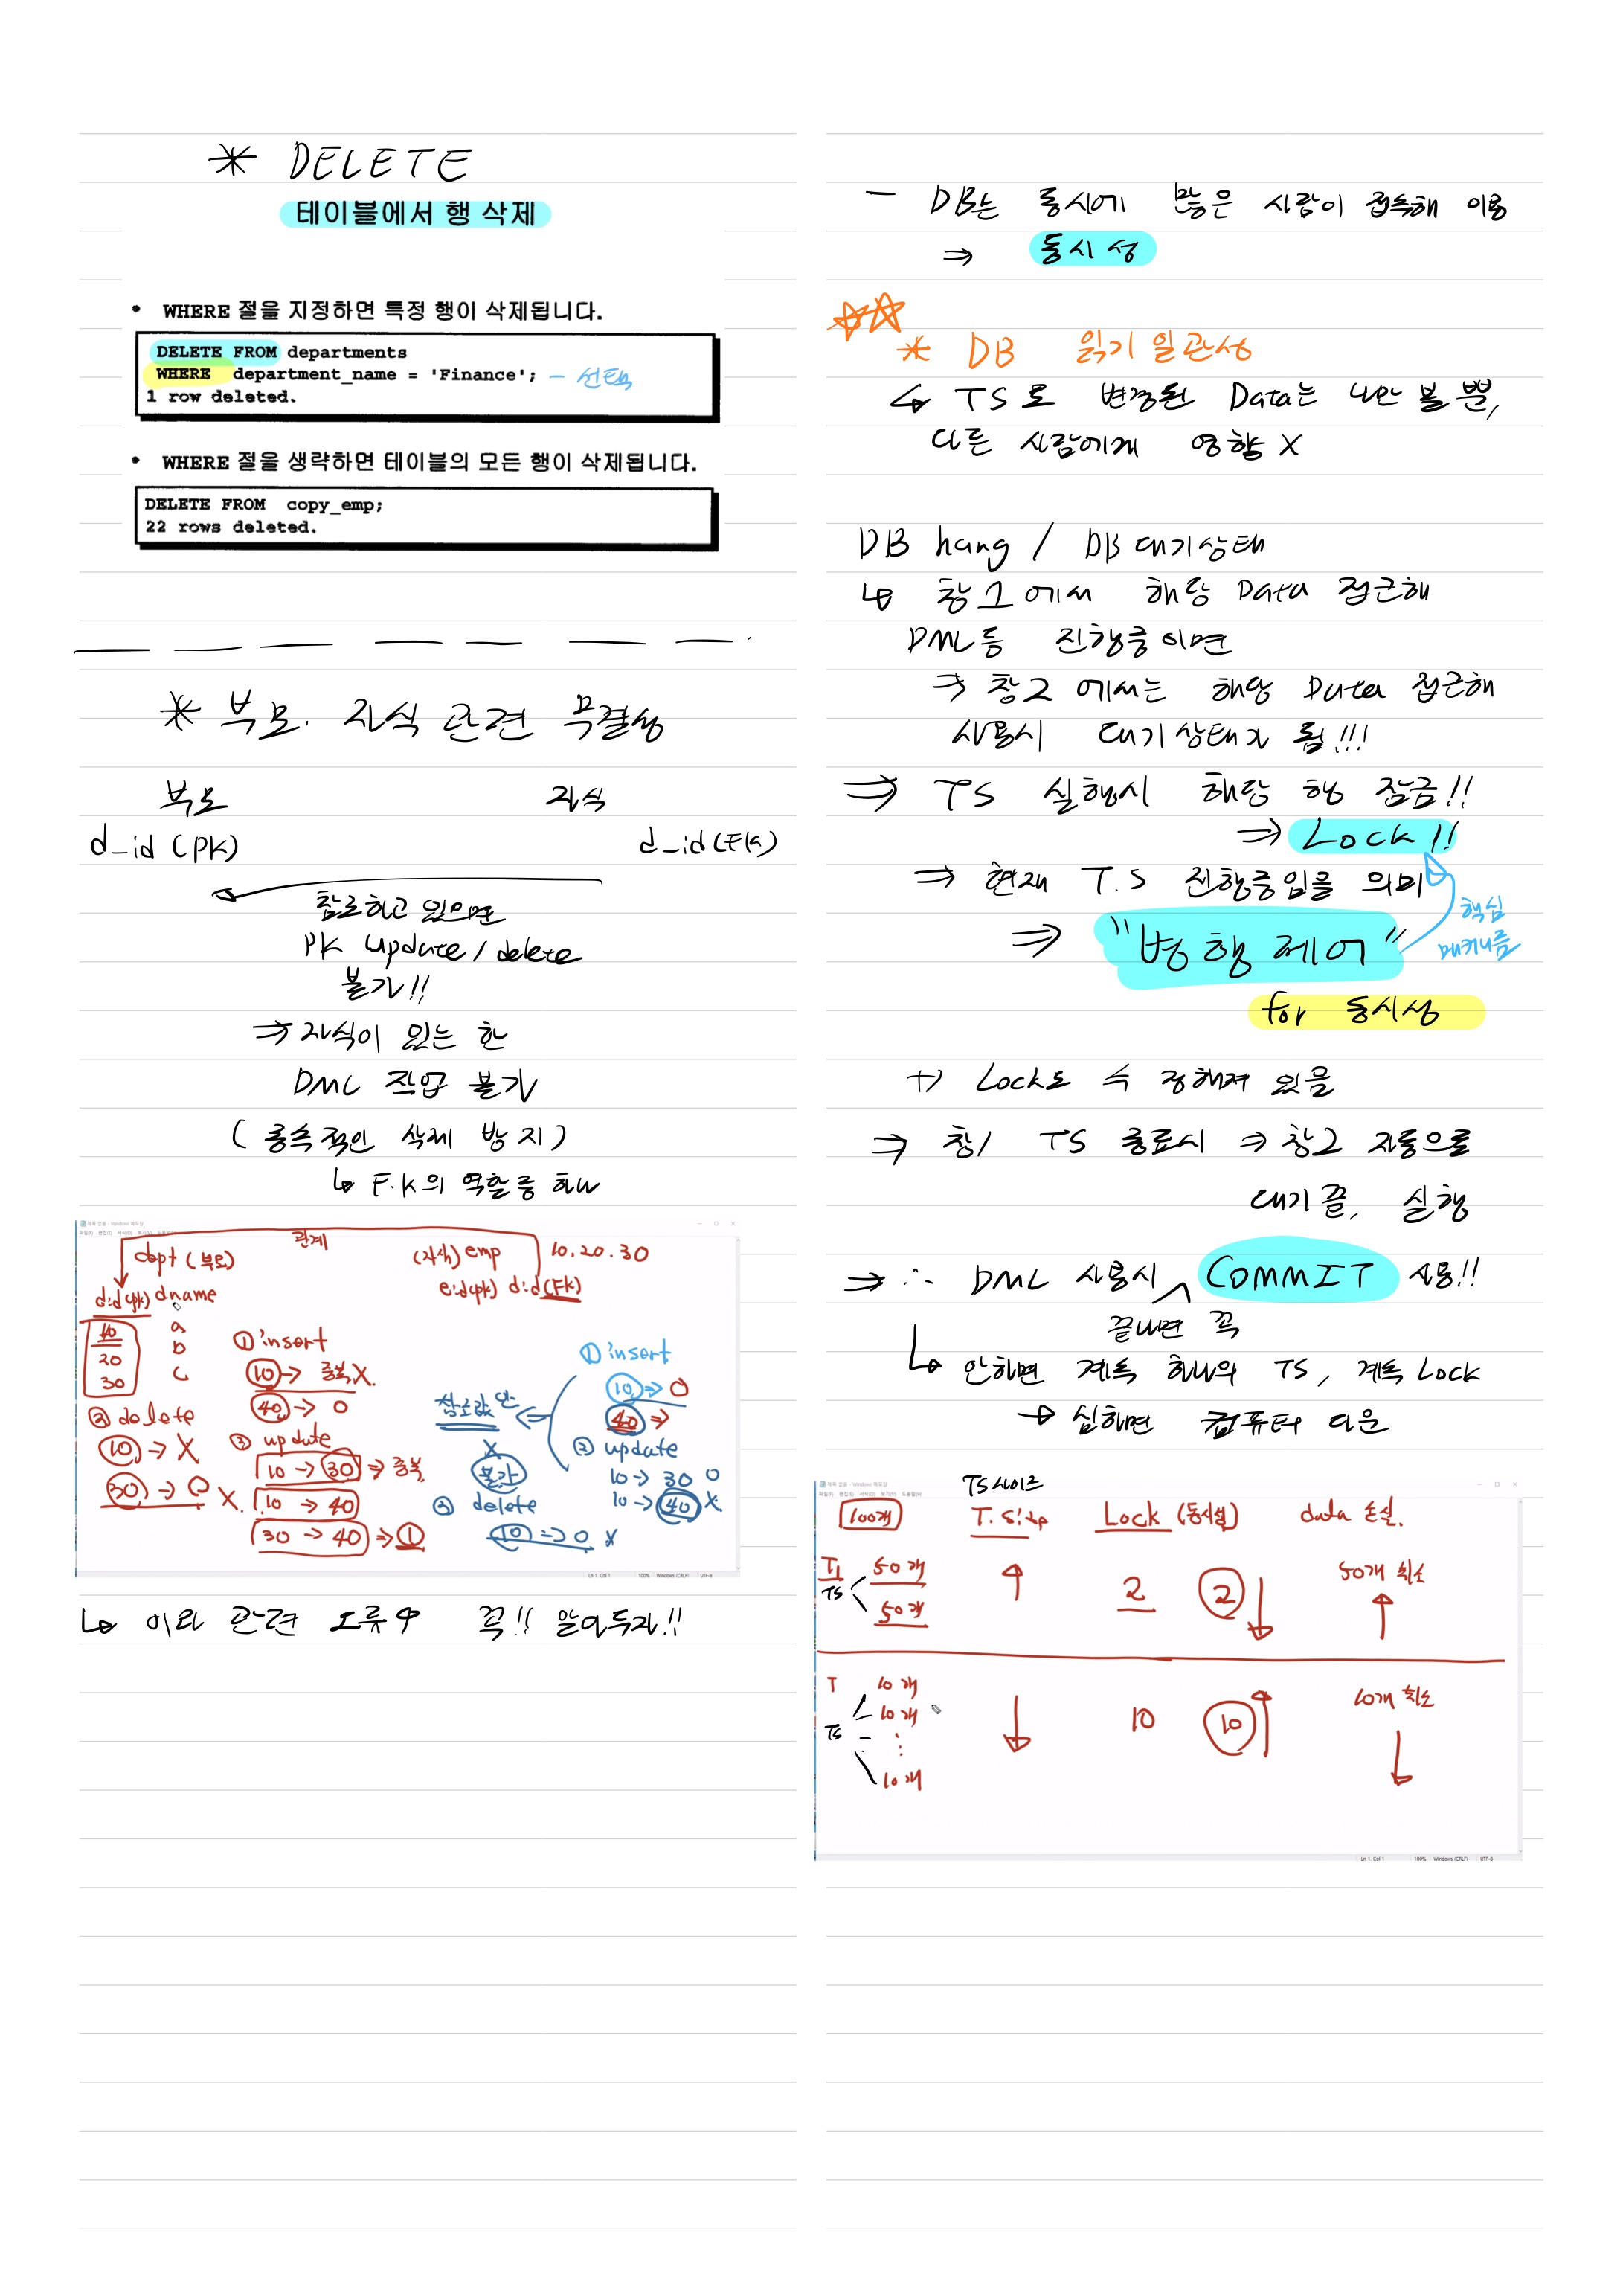 * DELETE
테이블에서 행 삭제
• WHERE 절을 지정하면 특정 행이 삭제됩니다.
DELETE FROM departments
WHERE department_name = 'Finance'; - 선택
1 row deleted.
• WHERE 절을 생략하면 테이블의 모든 행이 삭제됩니다.
DELETE FROM copy_emp;
22 rows deleted.
* 부모. 자식 관련 무결성
부모 자식
d_id (PK) d_id (FK)
참조하고 있으면
PK update/delete
불가!!
⇒ 자식이 있는 한
DML 작업 불가
(종속적인 삭제 방지)
↳ F.K의 역할중 하나
관계
dept (부모) (자식) emp 10.20.30
d.id(pk) dname e.id(pk) d.id(FK)
10 a
20 b
30 c
① insert
10 → 중복X.
40 → O
② delete
10 → X
30 → O X.
③ update
10 → 30 ⇒ 중복
10 → 40
30 → 40 ⇒ ①
① insert
10 ⇒ O
40 ⇒
참조값만
X
불가
② update
10 → 30 O
10 → 40 X
③ delete
10 ⇒ O X
↳ 이와 관련 오류 꼭!! 알아두자!!
- DB는 동시에 많은 사람이 접속해 이용
⇒ 동시성
* DB 읽기 일관성
↳ TS로 변경된 Data는 나만 볼 뿐,
다른 사람에게 영향 X
DB hang / DB 대기상태
↳ 창1에서 해당 Data 접근해
DML등 진행중이면
⇒ 창2 에서는 해당 Data 접근해
사용시 대기상태가 됨!!!
⇒ TS 실행시 해당 행 잠금!!
⇒ Lock!!
⇒ 현재 T.S 진행중임을 의미
핵심
메커니즘
⇒ "병행 제어"
for 동시성
+) Lock도 수 정해져 있음
⇒ 창1 TS 종료시 ⇒ 창2 자동으로
대기끝, 실행
⇒ ∴ DML 사용시 COMMIT 사용!!
끝내면 꼭
↳ 안하면 계속 하나의 TS, 계속 Lock
→ 심하면 컴퓨터 다운
TS사이즈
100개 T.Size Lock (동시성) data 손실.
T1 50개 ↑ 2 2 ↓ 50개 취소
TS 50개 ↑
T 10개 10개 취소
10개 ↓ 10 10 ↑
TS ⋮ ↓
10개